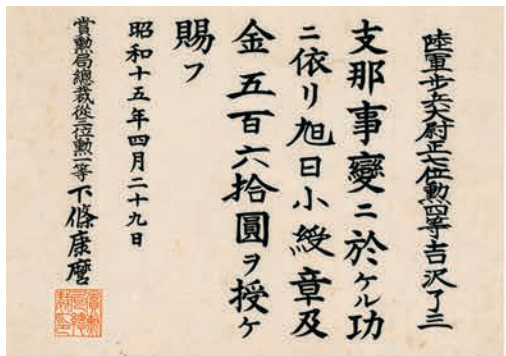 陸軍步兵大尉正七位勲四等吉沢了三
支那事變ニ於ケル功
ニ依リ旭日小綬章及
金五百六拾圓ヲ授ケ
賜フ
昭和十五年四月二十九日
賞勲局總裁從三位勲一等下條康麿